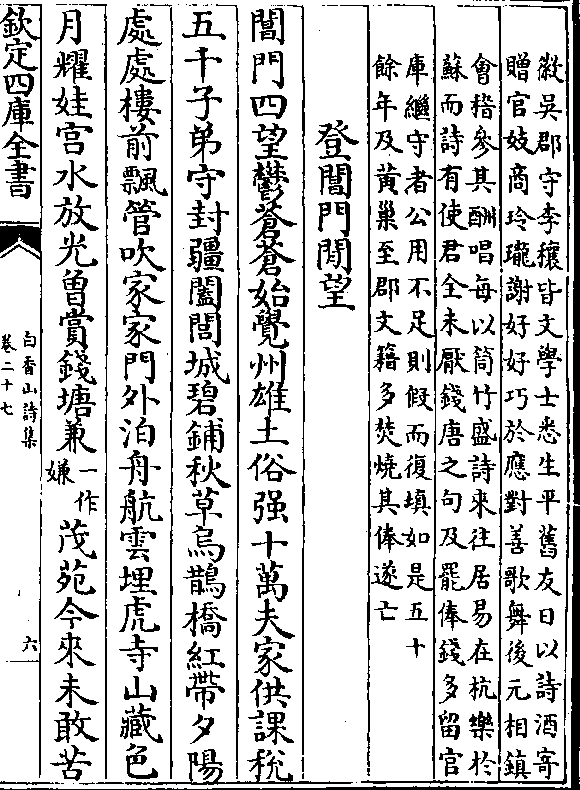 徽吳郡守李穰皆文學士悉生平舊友日以詩酒寄
贈官妓商玲瓏謝好好巧於應對善歌舞後元相鎮
會稽參其酬唱每以筒竹盛詩來往居易在杭樂於
蘇而詩有使君全未厭錢唐之句及罷俸錢多留官
庫繼守者公用不足則假而復填如是五十
餘年及黃巢至郡文籍多焚燒其俸遂亡
登閶門閒望
閶門四望鬱蒼蒼始覺州雄土俗强十萬夫家供課稅
五千子弟守封疆闔閭城碧鋪秋草烏鵲橋紅帶夕陽
處處樓前飄管吹家家門外泊舟航雲埋虎寺山藏色
月耀娃宫水放光曾賞錢塘兼一作嫌茂苑今來未敢苦
欽定四庫全書
白香山詩集
卷二十七
六